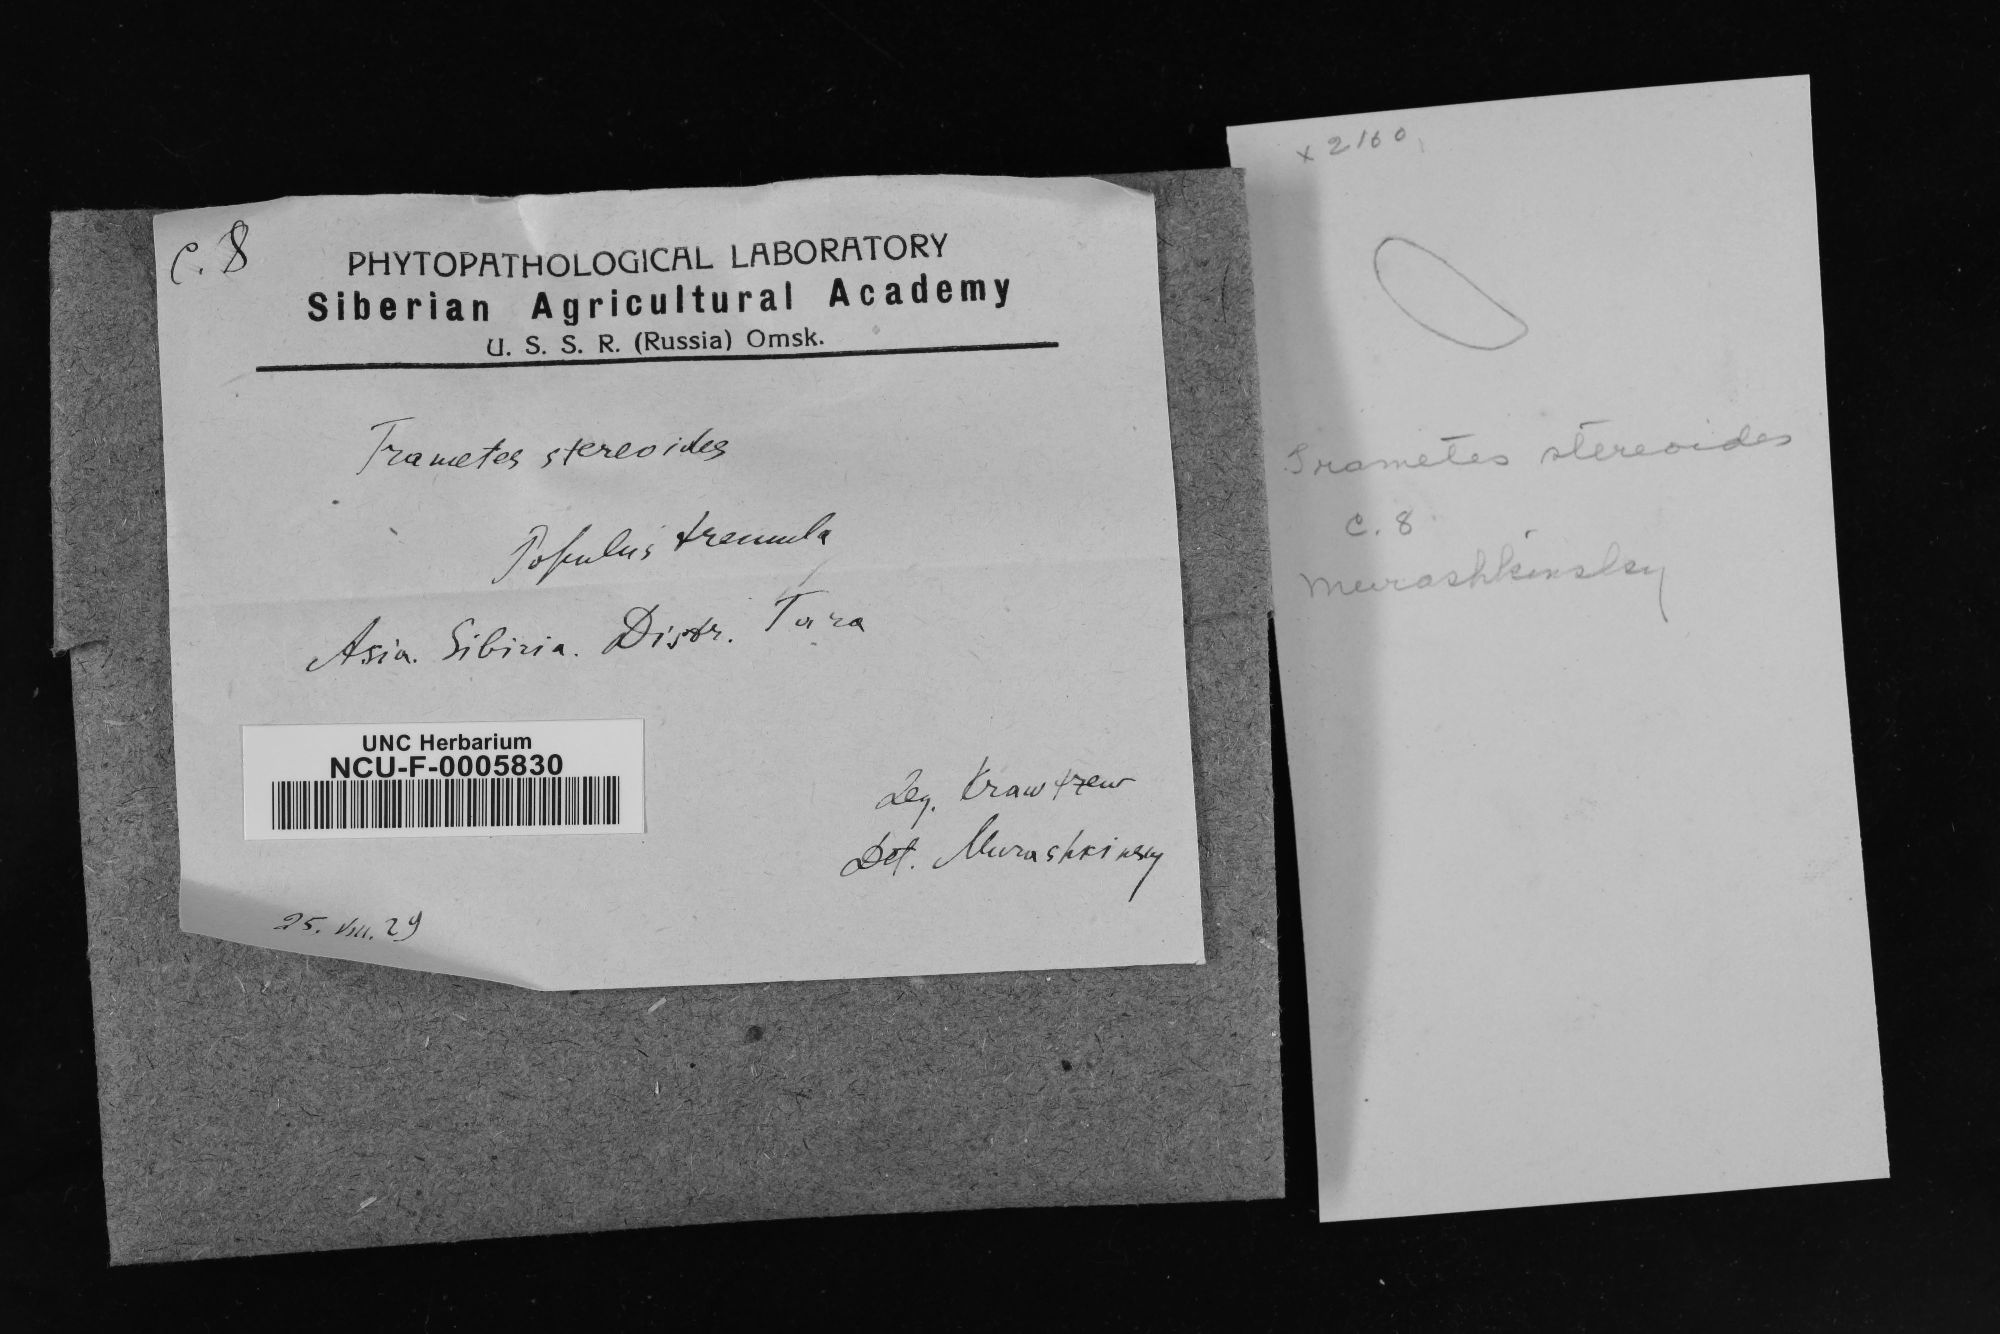 C. 8
PHYTOPATHOLOGICAL LABORATORY
Siberian Agricultural Academy
U. S. S. R. (Russia) Omsk.
Trametes stereoides
Populus tremula
Asia. Sibiria. Distr. Tara
UNC Herbarium
NCU-F-0005830
Leg. Krawtzew
Det. Murashkinsky
25. VIII. 29
x 2160
Trametes stereoides
C. 8
Murashkinsky